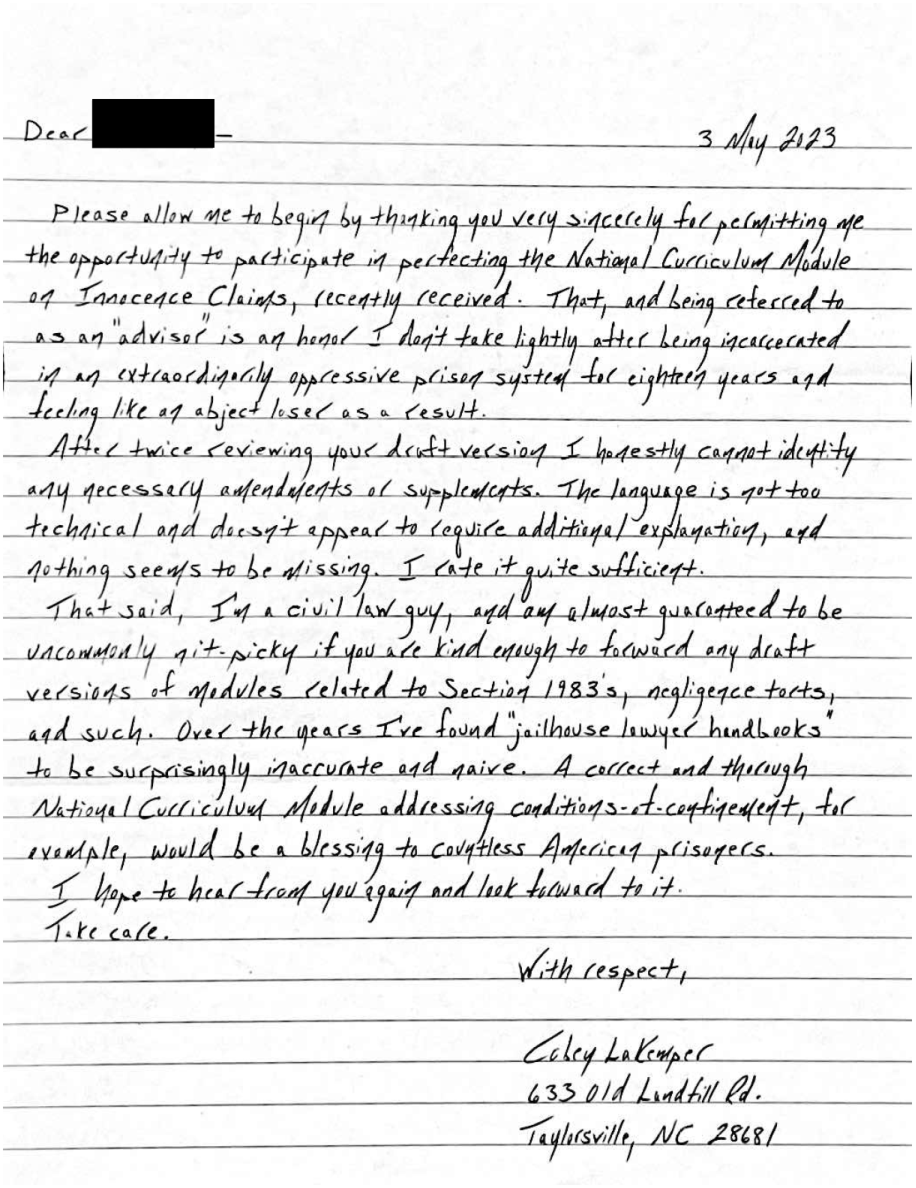 Dear –
3 May 2023
Please allow me to begin by thanking you very sincerely for permitting me
the opportunity to participate in perfecting the National Curriculum Module
on Innocence Claims, recently received. That, and being referred to
as an "advisor" is an honor I don't take lightly after being incarcerated
in an extraordinarily oppressive prison system for eighteen years and
feeling like an abject loser as a result.
After twice reviewing your draft version I honestly cannot identify
any necessary amendments or supplements. The language is not too
technical and doesn't appear to require additional explanation, and
nothing seems to be missing. I rate it quite sufficient.
That said, I'm a civil law guy, and am almost guaranteed to be
uncommonly nit-picky if you are kind enough to forward any draft
versions of modules related to Section 1983's, negligence torts,
and such. Over the years I've found "jailhouse lawyer handbooks"
to be surprisingly inaccurate and naive. A correct and thorough
National Curriculum Module addressing conditions-of-confinement, for
example, would be a blessing to countless American prisoners.
I hope to hear from you again and look forward to it.
Take care.
With respect,
LaKemper
633 Old Landfill Rd.
Taylorsville, NC 28681